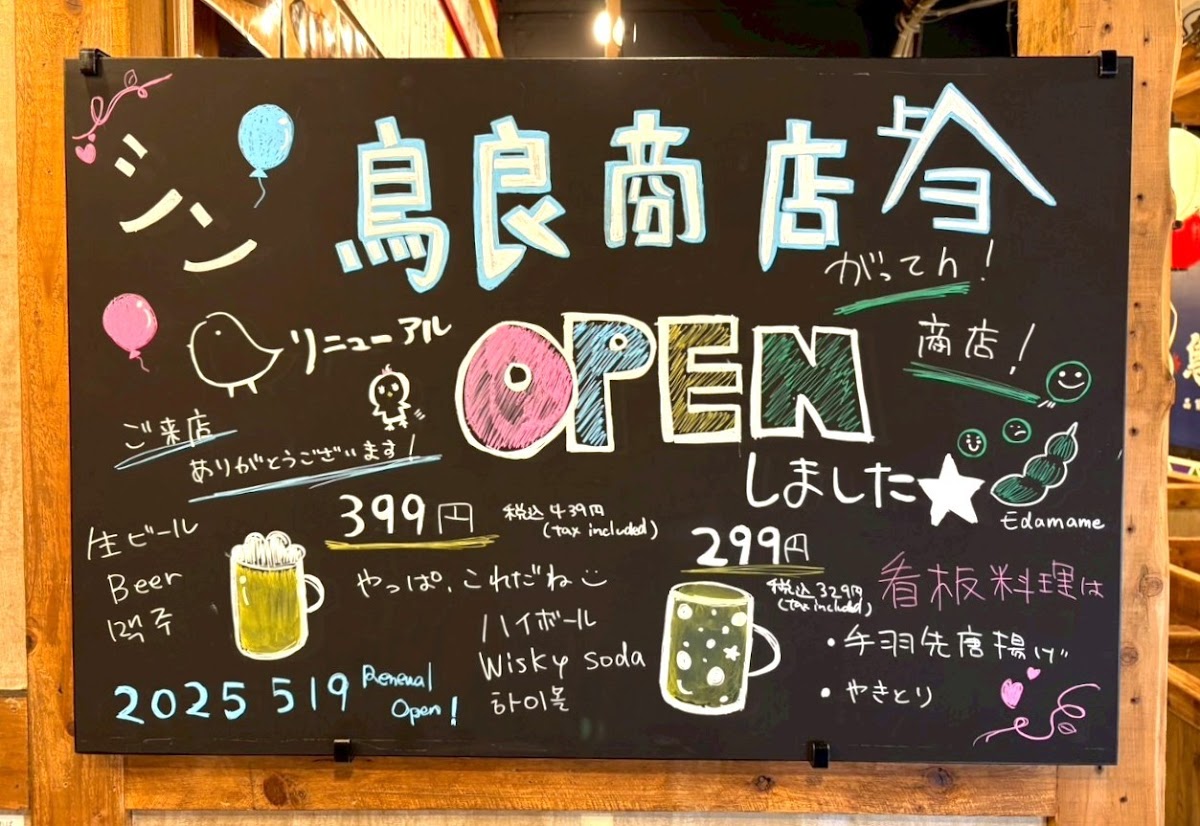 シン 鳥良商店
がってん!
商店!
リニューアル
OPEN
しました
ご来店
ありがとうございます!
Edamame
399円
税込439円
(tax included)
生ビール
Beer
맥주
やっぱ,これだね
299円
税込329円
(tax included)
ハイボール
Wisky soda
하이볼
看板料理は
・手羽先唐揚げ
・やきとり
2025 519 Renewal
Open!